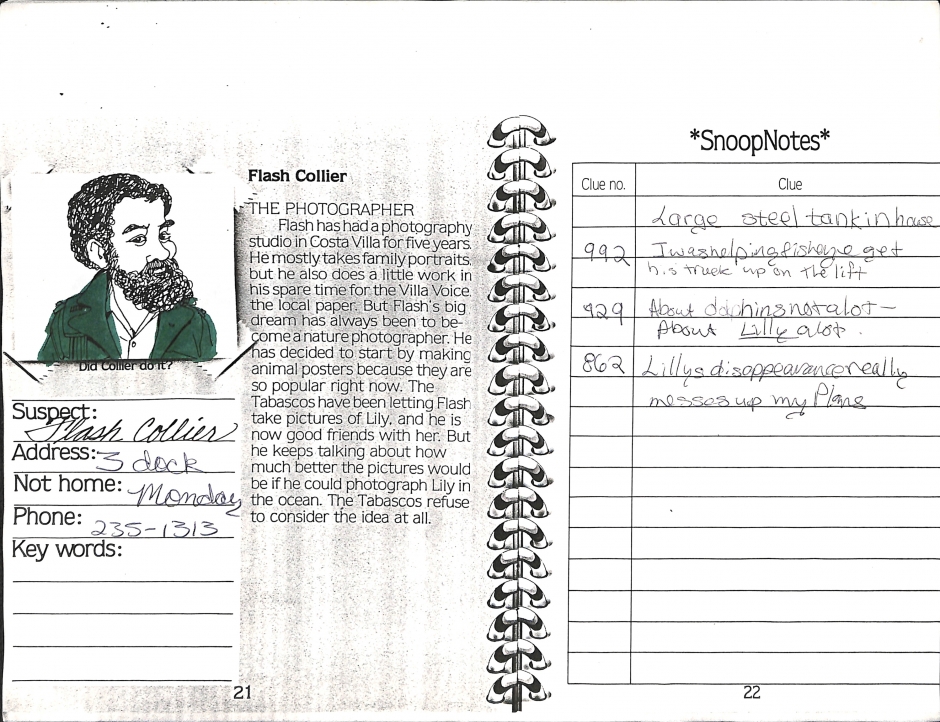 Did Collier do it?
Suspect:
Flash Collier
Address: 3 dock
Not home: Monday
Phone: 235-1313
Key words:
Flash Collier
THE PHOTOGRAPHER
Flash has had a photography
studio in Costa Villa for five years.
He mostly takes family portraits,
but he also does a little work in
his spare time for the Villa Voice,
the local paper. But Flash's big
dream has always been to be-
come a nature photographer. He
has decided to start by making
animal posters because they are
so popular right now. The
Tabascos have been letting Flash
take pictures of Lily, and he is
now good friends with her. But
he keeps talking about how
much better the pictures would
be if he could photograph Lily in
the ocean. The Tabascos refuse
to consider the idea at all.
21
*SnoopNotes*
Clue no. Clue
Large steel tank in house
992 I was helping fisheye get
his truck up on the lift
929 About dolphins not alot-
About Lilly alot.
862 Lillys disappearance really
messes up my Plans
22